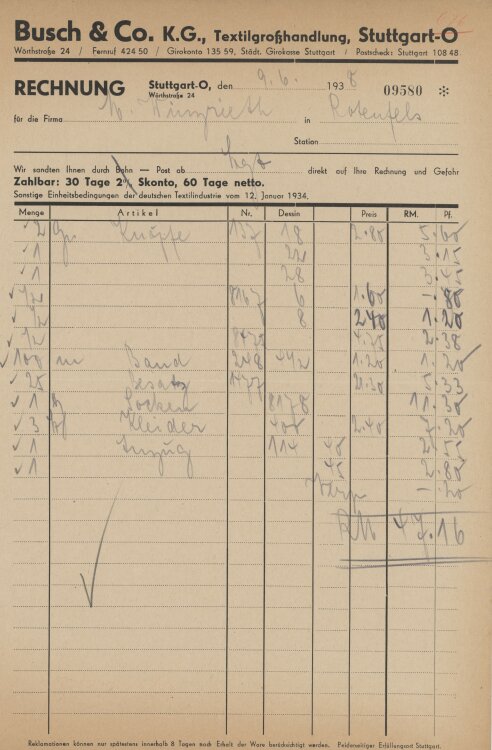 Busch & Co. K.G., Textilgroßhandlung, Stuttgart-O
Wörthstraße 24 / Fernruf 424 50 / Girokonto 135 59, Städt. Girokasse Stuttgart / Postscheck: Stuttgart 108 48
RECHNUNG Stuttgart-O, den 9.6. 1938 09580 ✻
Wörthstraße 24
für die Firma in Rotenfels
Station
Wir sandten Ihnen durch Bahn — Post ab direkt auf Ihre Rechnung und Gefahr
Zahlbar: 30 Tage 2% Skonto, 60 Tage netto.
Sonstige Einheitsbedingungen der deutschen Textilindustrie vom 12. Januar 1934.
Menge Artikel Nr. Dessin Preis RM. Pf.
2 Knöpfe 137 18 2.80 5.60
1 22 3.15
1 28 3.45
1/2 8167 6 1.60 -.80
1/2 8 2.40 1.20
1/2 4.75 2.38
100 m Band 248 1.20 1.20
25 Besatz 21.30 5.33
1 Socken 8178 11.30
3 Kleider 408 2.40 7.20
1 Anzug 114 40 2.55
1 45 2.80
-.20
RM 47.16
Reklamationen können nur spätestens innerhalb 8 Tagen nach Erhalt der Ware berücksichtigt werden. Beiderseitiger Erfüllungsort Stuttgart.